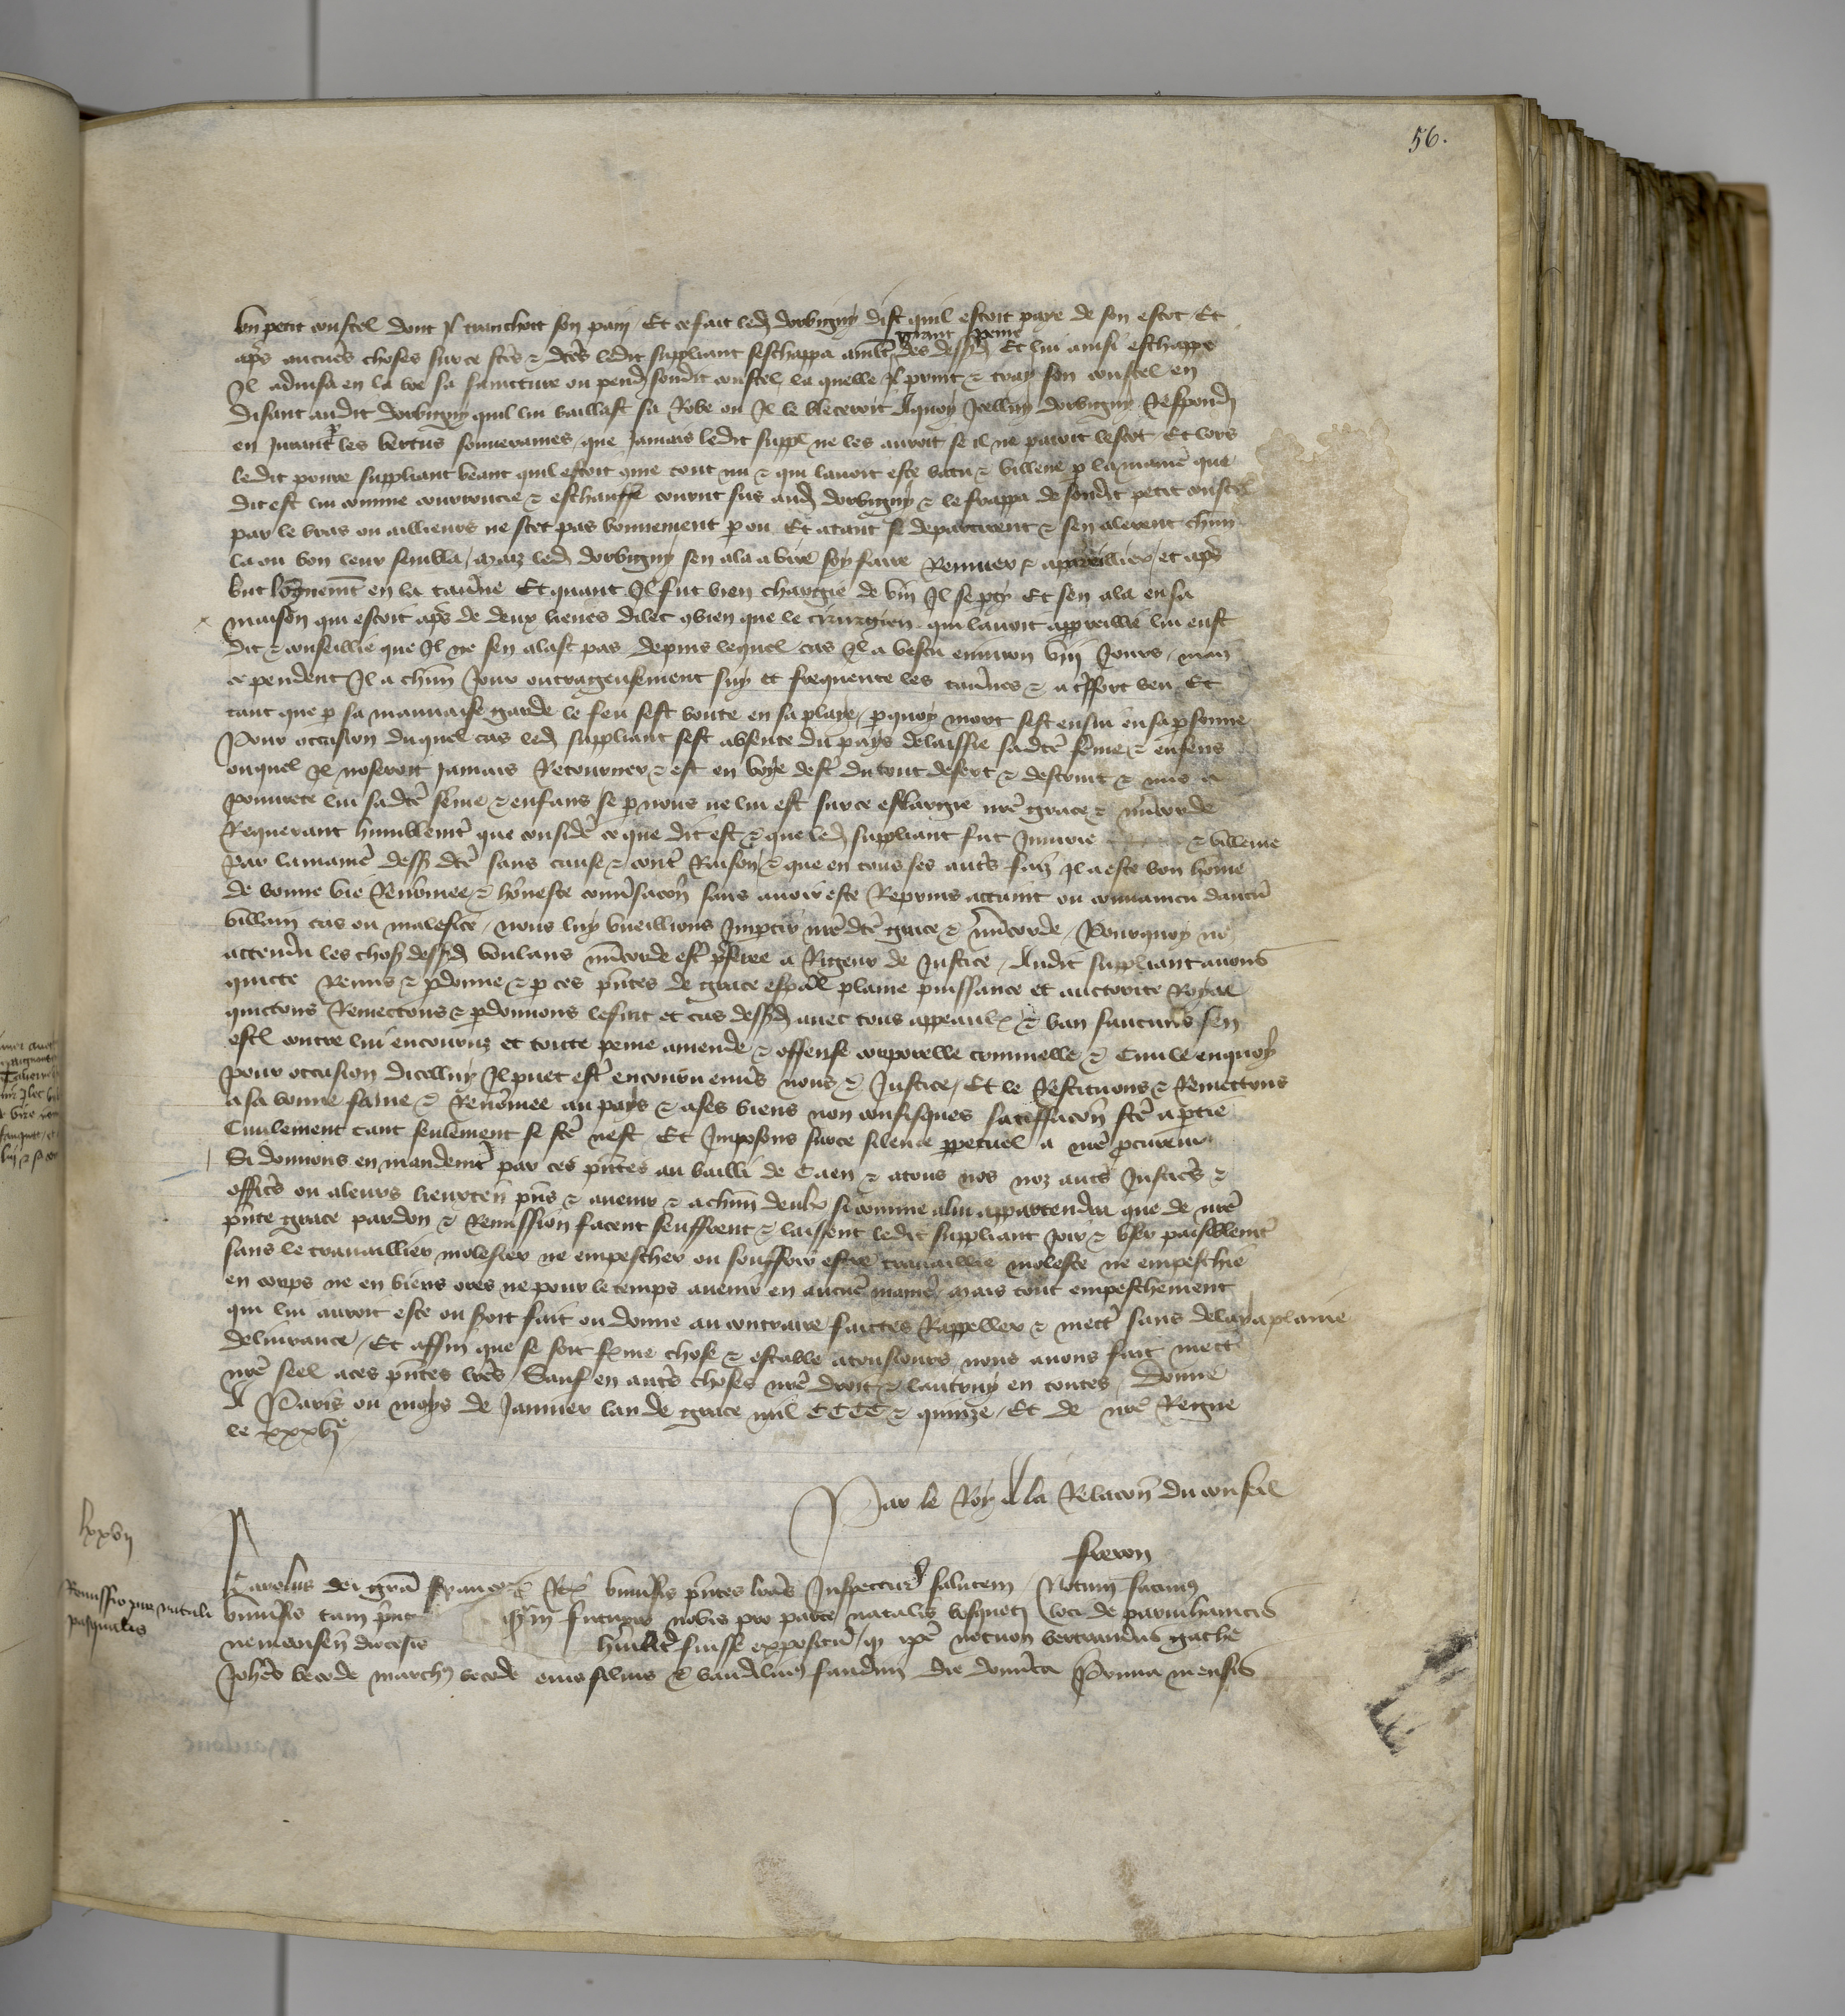 56.
un petit coustel dont il tranchoit son pain Et ce fait led dorbigny dist quil estoit paye de son escot Et
grant peine
apres aucunes choses sur ce fctes & dctes ledit suppliant seschappa des dessusd Et lui ainsi eschappe
Il advisa en la voe sa saincture ou pend sondit coustel la quelle il print & tray son coustel en
disant audit dorbigny quil lui baillast sa Robe ou Il le bleceroit Aquoy Icelluy dorbigny Respondy
en Jurant les vertus souveraines que Jamais ledit suppl ne les auroit se il ne paioit lescot Et lors
ledit povre suppliant veant quil estoit qme tout nu & qui lavoit este batu & villene p la maniere que
dit est lui comme courroucie & eschauffe courut sus aud dorbigny & le frappa de sondit petit coustel
par le bras ou ailleurs ne scet pas bonnement p ou Et atant se departirent & sen alerent chun
la ou bon leur sembla maiz led dorbigny sen ala a vire soy faire Remuer & apareillier et apres
but longuement en la taverne Et quant Il fut bien chargie de vin Il se pty Et sen ala en sa
maison qui estoit apres de deux lieues dilec combien que le cirurgien qui lavoit appareillie lui eust
dit & conseillie que Il ne sen alast pas depuis lequel cas Il a vescu environ viij Jours mais
ce pendent Il a chun Jour oultrageusement suy et frequente les tavernes & a effort beu Et
tant que p sa mauvaise garde le feu sest boute en sa playe pquoy mort sest ensui en sa psonne
Pour occasion duquel cas led suppliant sest absente du pays delaissie sadcte feme & enfens
ouquel Il noseroit Jamais Retourner & est en voye destre du tout desert & destruit & mis a
povrete lui sadcte feme & enfans se p nous ne lui est sur ce eslargie nre grace & misericorde
Requerant humblement que considere ce que dit est & que led suppliant fut Injurie & villene
par la maniere dessus dcte sans cause & contre Raison & que en tous ses autres faiz Il a este bon home
de bonne vie Renommee & honneste conversacion sans avoir este Reprins attaint ou convaincu daucun
villain cas ou malefice nous luy vueillions Impartir nredcte grace & misericorde Pourquoy nous
attendu les choses dessusd voulans misericorde estre preferee a Rigeur de Justice Audit suppliant avons
quicte Remis & pdonne & p ces pntes de grace espal plaine puissance et auctorite Royal
quictons Remectons & pdonnons le fait et cas dessusd avec tous appeaulx & ban saucuns sen
est contre lui encouruz et toute peine amende & offense corporelle criminelle & Civile enquoy
pour occasion dicelluy Il puet estre encouru envers nous & Justice Et le Restituons & Remectons
a sa bonne fame & Renommee au pays & a ses biens non confisques satisfacion fcte a ptie
Civilement tant seulement se fcte nest Et Imposons sur ce silence ppetuel a nre procureur
Si donnons en mandement par ces pntes au bailli de Caen & a tous nos noz autres Justiciers &
officiers ou a leurs lieuxten pns & avenir & a chun deulx si comme a lui appartendra que de nre
pnte grace pardon & Remission facent seuffrent & laissent ledit suppliant Joir & user paisiblement
sans le travaillier molester ne empescher ou souffrir estre travaillie moleste ne empeschie
en corps ne en biens ores ne pour le temps avenir en aucune maniere Mais tout empeschement
qui lui auroit este ou soit fait ou donne au contraire facites Rappeller & mectre sans delay a plaine
delivrance Et affin que se soit ferme chose & estable a tousjours nous avons fait mectre
nre seel a ces pntes lres Sauf en autres choses nre droit & lautruy en toutes Donne
A Paris ou moys de Janvier lan de grace mil CCCC & quinze Et de nre Regne
le xxxvje
Par le Roy A la Relacion du conseil
freron
lxxvij
Remissio pro natali
pasqualis
Karolus dei gra francorum Rex universis pntes lras Inspecturis salutem Notum facimus
universis tam pntibus qm futuris nobis pro parte natalis loci de
nemausen diocesis humiliter fuisse expositum q ipse Bertrandus
Johes die dominica Prima mensis